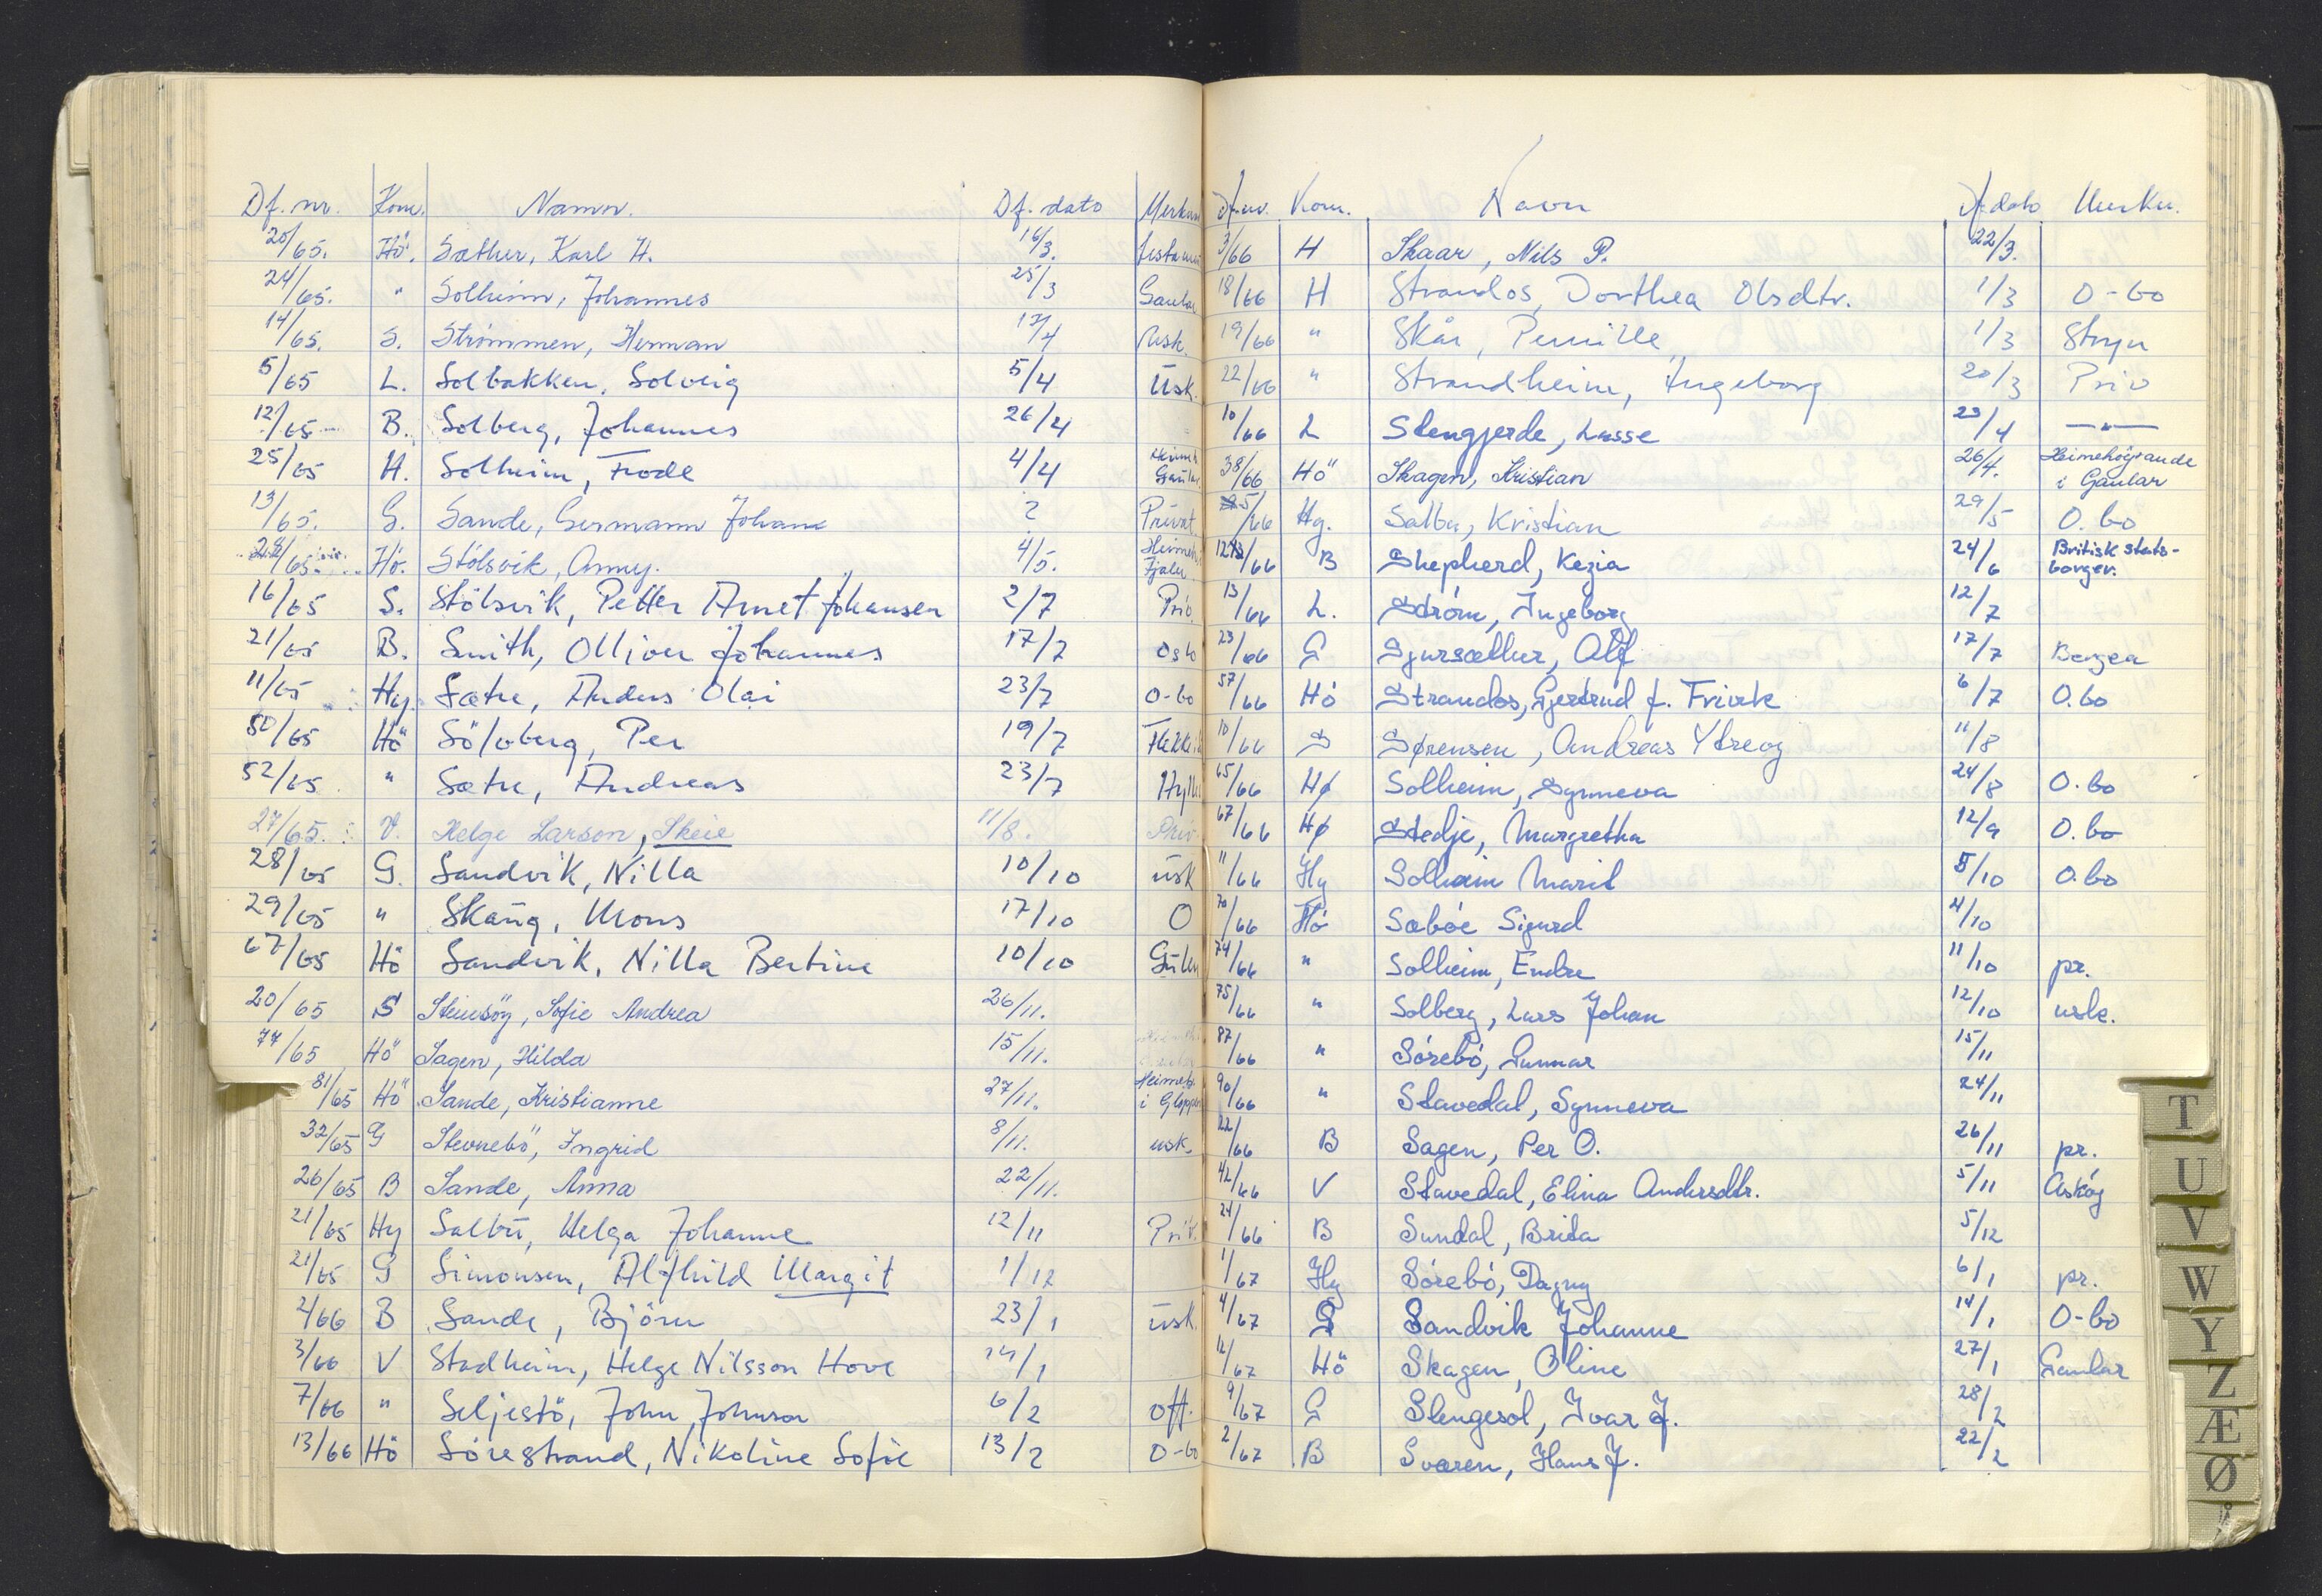 Df. nr. Kom. Namn. Df. dato Merkn
20/65. Hö. Sæther, Karl H. 16/3.
24/65. " Solheim, Johannes 25/3 Gaular
14/65. S. Strömmen, Herman 17/4 Usk.
5/65 L. Solbakken, Solveig 5/4 Usk.
12/65 B. Solberg, Johannes 26/4
25/65 H. Solheim, Frode 4/4 Gaular
13/65. G. Sande, Germann Johan 2 Privat
/65. Hö. Stölsvik, Anny. 4/5. Fjaler
16/65 S. Stölsvik, Petter Arnet Johansen 2/7 Priv.
21/65 B. Smith, Olliver Johannes 17/7 Oslo
11/65 Hy. Sætre, Anders Olai 23/7 O-bo
50/65 Hö Sölvberg, Per 19/7
52/65 " Sætre, Andreas 23/7 Hylle
27/65. V. Helge Larson, Skeie 11/8. Priv.
28/65 G. Sandvik, Nilla 10/10 usk
29/65 " Skaug, Mons 17/10 O
67/65 Hö Sandvik, Nilla Bertine 10/10 Gulen
20/65 S Steinsöy, Sofie Andrea 26/11.
77/65 Hö Sagen, Hilda 15/11.
81/65 Hö Sande, Kristianne 27/11. Heimeh. i Gloppen
32/65 G Stevnebö, Ingrid 8/11. usk.
26/65 B Sande, Anna 22/11.
21/65 Hy Salbu, Helga Johanne 12/11 Priv.
21/65 G Simonsen, Alfhild Margit 1/12
2/66 B Sande, Björn 23/1 usk.
3/66 V Stadheim, Helge Nilsson Hove 14/1
7/66 " Seljestö, John Johnson 6/2 off.
13/66 Hö Sörestrand, Nikoline Sofie 13/2 O-bo
Df.nr. Kom. Navn Df.dato Merkn.
3/66 H Skaar, Nils P. 22/3.
18/66 H Strandos, Dorthea Olsdtr. 1/3 O-bo
19/66 " Skår, Pernille 1/3 Stryn
22/66 " Strandheim, Ingeborg 20/3 Priv
10/66 L Stengjerde, Lasse 23/4 — " —
38/66 Hö Skagen, Kristian 26/4. Heimehöyrande i Gaular
5/66 Hy. Salbu, Kristian 29/5 O. bo
12/66 B Shepherd, Kezia 24/6 Britisk statsborger.
13/66 L. Ström, Ingeborg 12/7
23/66 G Gjursæther, Alf 17/7 Bergen
57/66 Hö Strandos, Gjertrud f. Frivik 6/7 O.bo
10/66 S Sørensen, Andreas Ytreøy 11/8
65/66 Hø Solheim, Synneva 24/8 O.bo
67/66 Hø Stedje, Margretha 12/9 O.bo
11/66 Hy Solheim Marit 8/10 O.bo
70/66 Hö Sæböe Sigurd 4/10
74/66 " Solheim, Endre 11/10 pr.
75/66 " Solberg, Lars Johan 12/10 usk.
87/66 " Sörebö, Gunnar 15/11
90/66 " Stavedal, Synneva 24/11
22/66 B Sagen, Per O. 26/11 pr.
42/66 V Stavedal, Elina Andersdtr. 5/11 Askøy
24/66 B Sundal, Brita 5/12
1/67 Hy Sörebö, Dagny 6/1 pr.
4/67 S Sandvik Johanne 14/1 O-bo
12/67 Hö Skagen, Oline 27/1 Gaular
9/67 G Stengesol, Ivar J. 28/2
2/67 B Sværen, Hans J. 22/2
T
U
V
W
Y
Z
Æ
Ø
Å